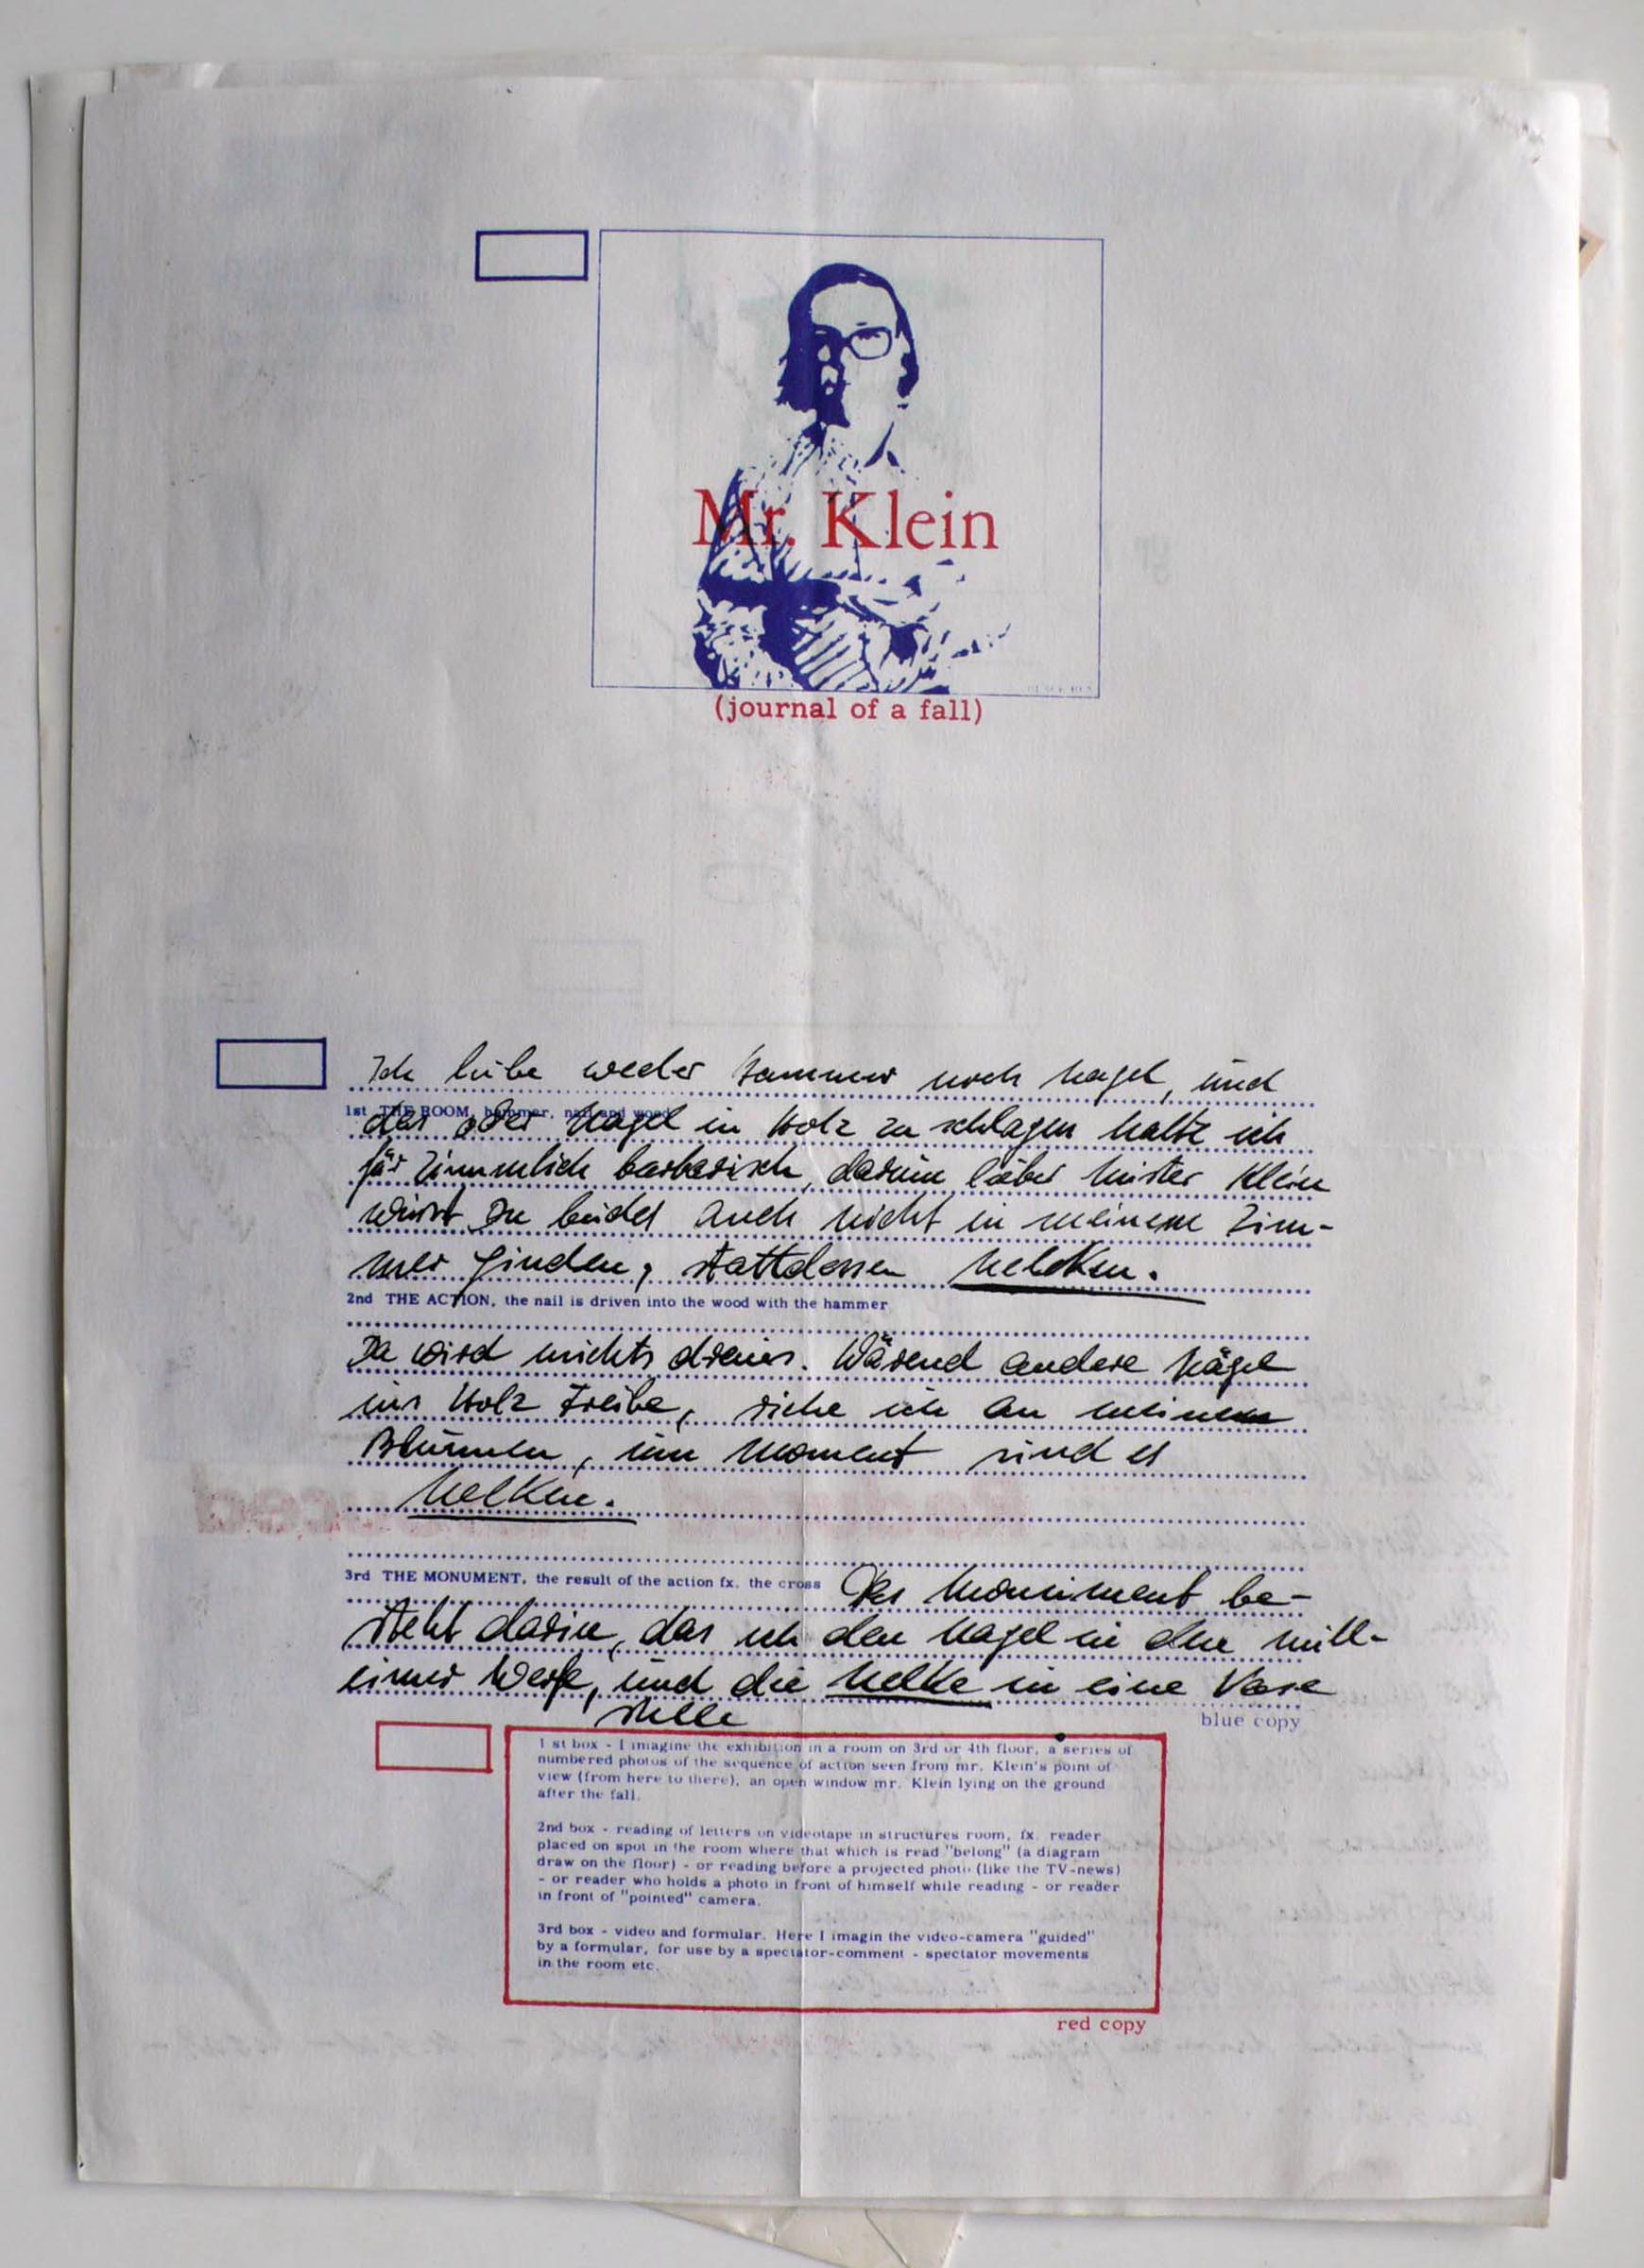 Mr. Klein
(journal of a fall)
Ich liebe weder Hammer noch Nagel, und
1st THE ROOM, hammer, nail and wood
das oder Nagel in Holz zu schlagen halte ich
für zimmlich barbarisch, darum lieber Mister Klein
wirst Du beides auch nicht in meinem Zim-
mer finden, stattdessen Nelken.
2nd THE ACTION, the nail is driven into the wood with the hammer
Da wird nichts draus. Wärend andere Nägel
ins Holz treibe, riche ich an meinen
Blumen, im Moment sind es
Nelken.
3rd THE MONUMENT, the result of the action fx. the cross Das Monument be-
steht darin, das ich den Nagel in den Müll-
eimer werfe, und die Nelke in eine Vase
stelle
blue copy
1 st box - I imagine the exhibition in a room on 3rd or 4th floor, a series of
numbered photos of the sequence of action seen from mr. Klein's point of
view (from here to there), an open window mr. Klein lying on the ground
after the fall.
2nd box - reading of letters on videotape in structures room, fx. reader
placed on spot in the room where that which is read "belong" (a diagram
draw on the floor) - or reading before a projected photo (like the TV-news)
- or reader who holds a photo in front of himself while reading - or reader
in front of "pointed" camera.
3rd box - video and formular. Here I imagin the video-camera "guided"
by a formular, for use by a spectator-comment - spectator movements
in the room etc.
red copy